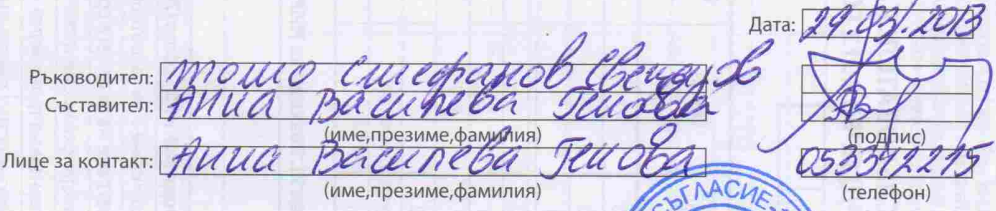 Дата: 29.03.2013
Ръководител: Тошо Стефанов
Съставител: Анна Василева Генова
(име,презиме,фамилия) (подпис)
Лице за контакт: Анна Василева Генова 053312215
(име,презиме,фамилия) (телефон)
СЪГЛАСИЕ